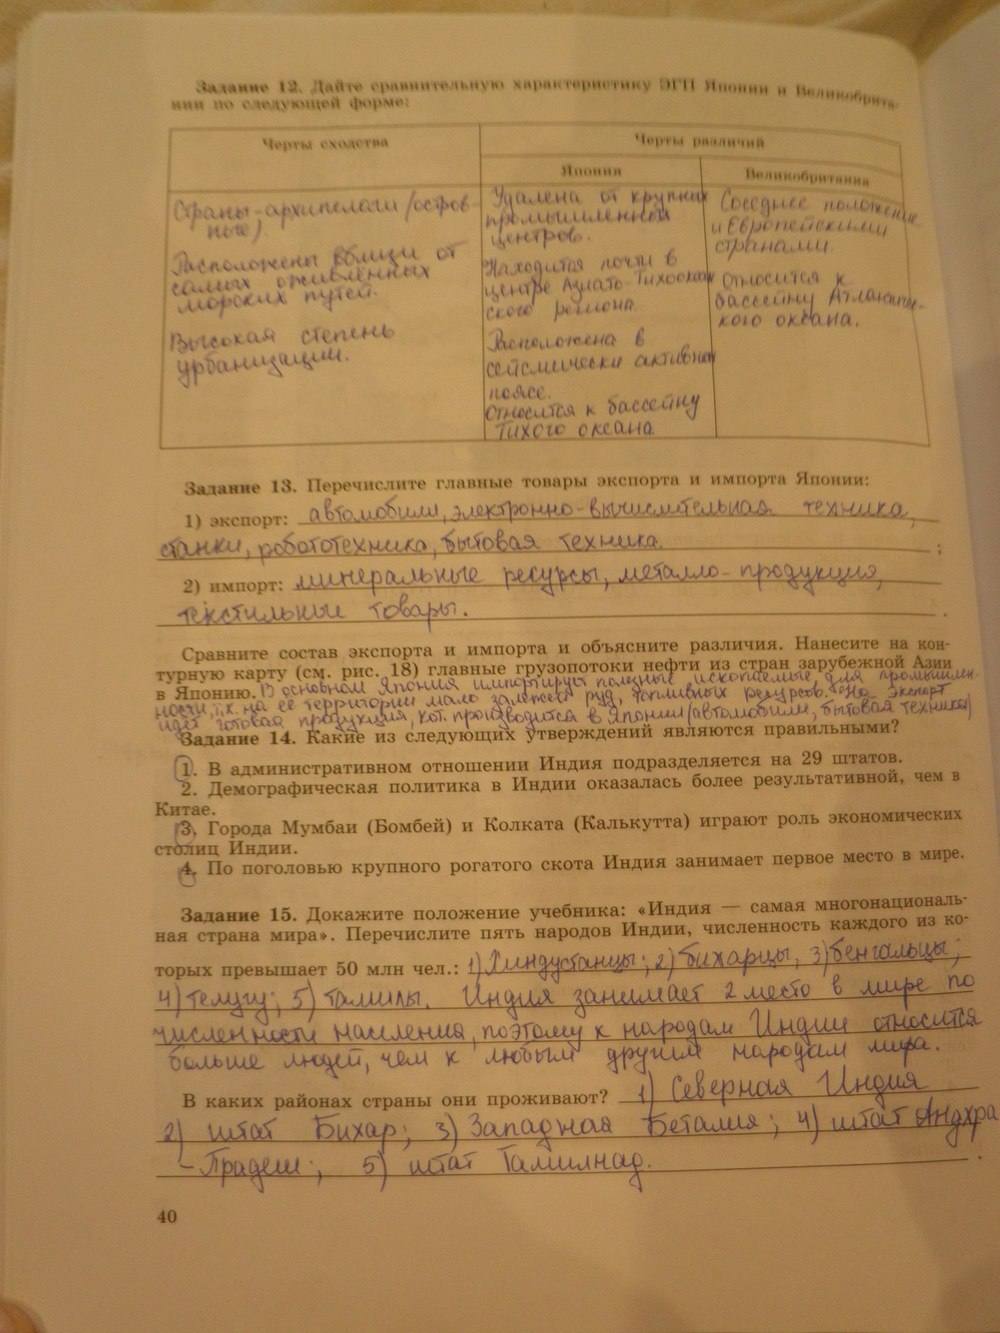 Задание 12. Дайте сравнительную характеристику ЭГП Японии и Великобрита-
нии по следующей форме:
Черты сходства
Черты различий
Япония
Великобритания
Страны-архипелаги (остров-
ные).
Расположены вблизи от
самых оживлённых
морских путей.
Высокая степень
урбанизации.
Удалена от крупных
промышленной
центров.
Находится почти в
центре Азиато-Тихоокеан
ского региона.
Расположена в
сейсмически активном
поясе.
Относится к бассейну
Тихого океана
Соседнее положение
и Европейскими
странами.
Относится к
бассейну Атлантиче-
кого океана.
Задание 13. Перечислите главные товары экспорта и импорта Японии:
1) экспорт: автомобили, электронно-вычислительная техника,
станки, робототехника, бытовая техника. ;
2) импорт: минеральные ресурсы, металло-продукция,
текстильные товары. .
Сравните состав экспорта и импорта и объясните различия. Нанесите на кон-
турную карту (см. рис. 18) главные грузопотоки нефти из стран зарубежной Азии
в Японию. В основном Япония импортирует полезные ископаемые для промышлен-
ности, т.к. на её территории мало залежей руд, топливных ресурсов. На экспорт
идёт готовая продукция, кот. производится в Японии (автомобили, бытовая техника)
Задание 14. Какие из следующих утверждений являются правильными?
1. В административном отношении Индия подразделяется на 29 штатов.
2. Демографическая политика в Индии оказалась более результативной, чем в
Китае.
3. Города Мумбаи (Бомбей) и Колката (Калькутта) играют роль экономических
столиц Индии.
4. По поголовью крупного рогатого скота Индия занимает первое место в мире.
Задание 15. Докажите положение учебника: «Индия — самая многонациональ-
ная страна мира». Перечислите пять народов Индии, численность каждого из ко-
торых превышает 50 млн чел.: 1) Хиндустанцы; 2) бихарцы, 3) бенгальцы;
4) телугу; 5) тамилы. Индия занимает 2 место в мире по
численности населения, поэтому к народам Индии относится
больше людей, чем к любым другим народам мира.
В каких районах страны они проживают? 1) Северная Индия
2) штат Бихар; 3) Западная Бегалия; 4) штат Андхра
-Прадеш; 5) штат Тамилнад. .
40